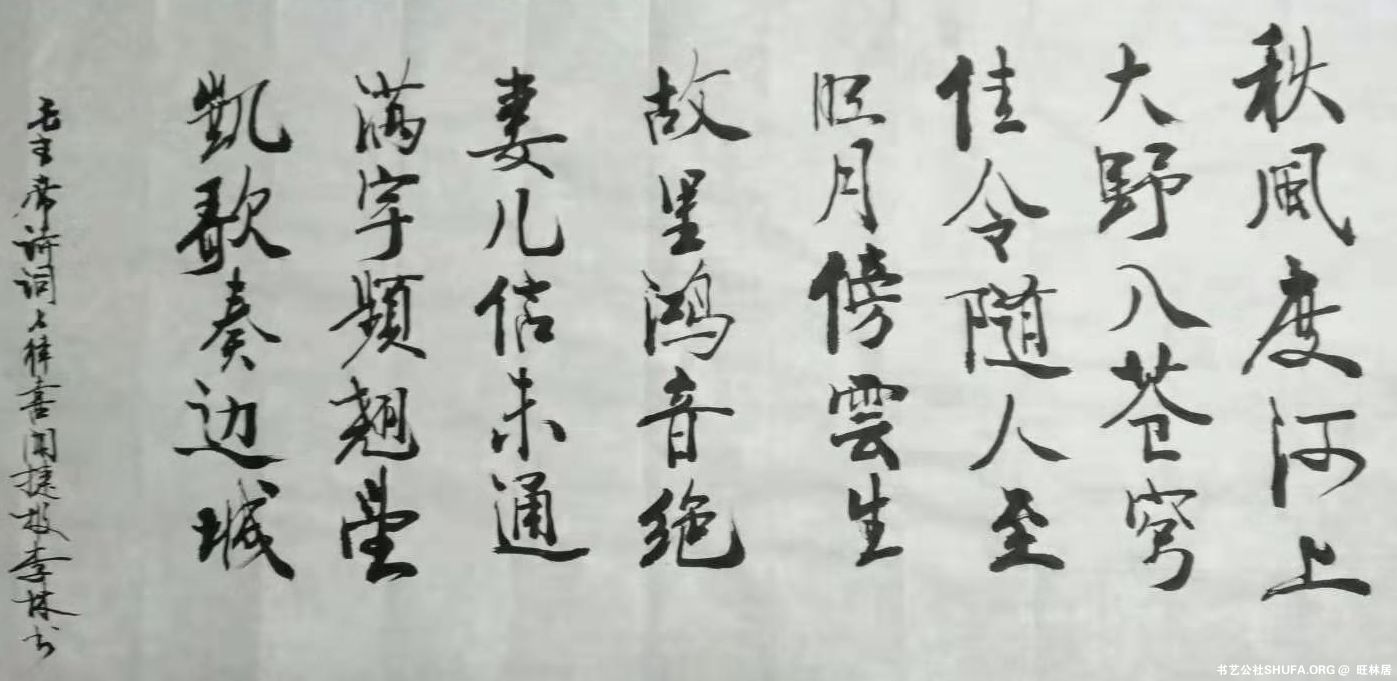 秋風度河上
大野入苍穹
佳令隨人至
明月傍雲生
故里鸿音绝
妻儿信未通
满宇頻翘望
凱歌奏边城
毛主席诗词七律喜闻捷报李林书
书艺公社SHUFA.ORG @ 旺林居